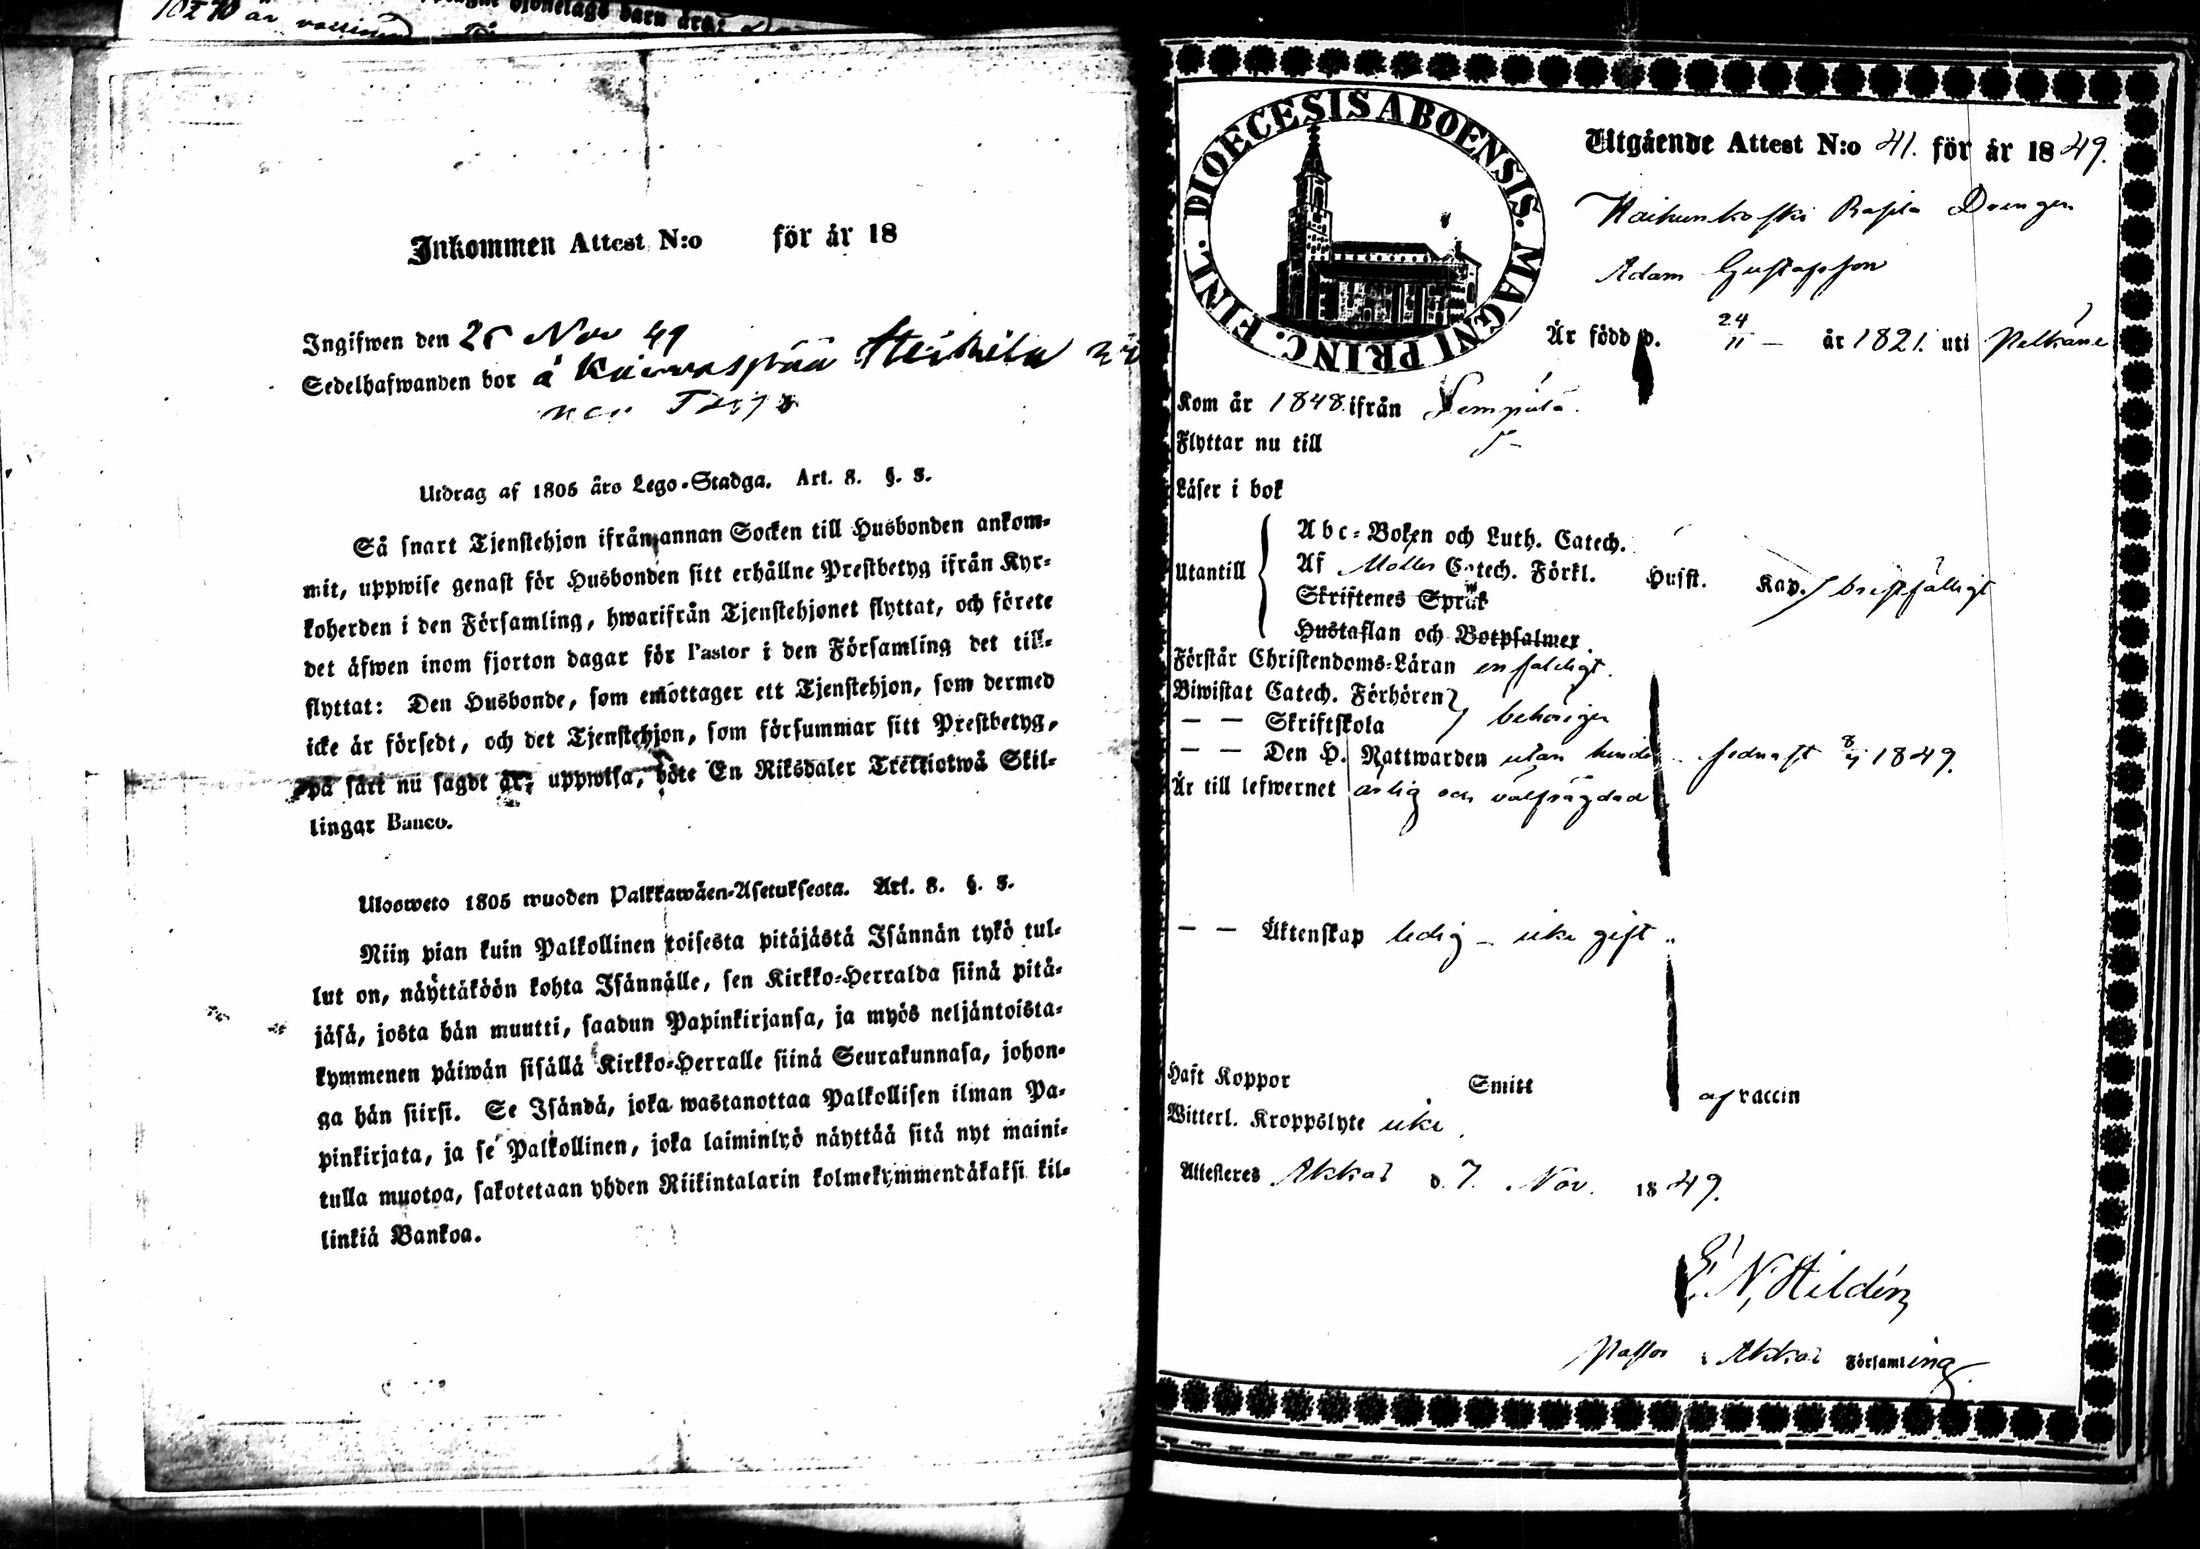 Inkommen Attest N:o för år 18
Ingifwen den 25 Nov 49
Sedelhafwanden bor å
Utdrag af 1805 års Lego-Stadga. Art. 8. §. 3.
Så snart Tjenstehjon ifrån annan Socken till Husbonden ankom-
mit, uppwise genast för Husbonden sitt erhållne Prestbetyg ifrån Kyr-
koherden i den Församling, hwarifrån Tjenstehjonet flyttat, och förete
det äfwen inom fjorton dagar för Pastor i den Församling det till-
flyttat: Den Husbonde, som emottager ett Tjenstehjon, som dermed
icke är försedt, och det Tjenstehjon, som försummar sitt Prestbetyg,
på sätt nu sagdt är, uppwisa, böte En Riksdaler Trettiotwå Skil-
lingar Banco.
Ulosweto 1805 wuoden Palkkawäen-Asetuksesta. Art. 8. §. 3.
Niin pian kuin Palkollinen toisesta pitäjästä Isännän tykö tul-
lut on, näyttäköön kohta Isännälle, sen Kirkko-Herralda siinä pitä-
jäsä, josta hän muutti, saadun Papinkirjansa, ja myös neljäntoista-
kymmenen päiwän sisällä Kirkko-Herralle siinä Seurakunnasa, johon-
ga hän siirsi. Se Isändä, joka wastanottaa Palkollisen ilman Pa-
pinkirjata, ja se Palkollinen, joka laiminlyö näyttää sitä nyt maini-
tulla muotoa, sakotetaan yhden Riikintalarin kolmekymmendäkaksi kil-
linkiä Bankoa.
DIOECESIS ABOENSIS. MAGNI PRINC. FINL.
Utgående Attest N:o 41. för år 1849.
Drengen
Adam Gustafsson
Är född d. 24/11 år 1821. uti Pelkäne
Kom år 1848 ifrån Lempälä.
Flyttar nu till
Läser i bok
Utantill
Abc-Boken och Luth. Catech.
Af Möllers Catech. Förkl. Husst. Kap. bristfälligt
Skriftenes Språk
Hustaflan och Botpsalmer.
Förstår Christendoms-Läran enfaldigt.
Biwistat Catech. Förhören
— — Skriftskola behörigen
— — Den H. Nattwarden utan hinder sednast 1849.
Är till lefwernet ärlig och välfrägdad
— — Äktenskap ledig - icke gift.
Haft Koppor Smitt af vaccin
Witterl. Kroppslyte icke
Attesteres Akkas d. 7. Nov. 1849.
E. N. Hildén
Pastor i Akkas Församling.